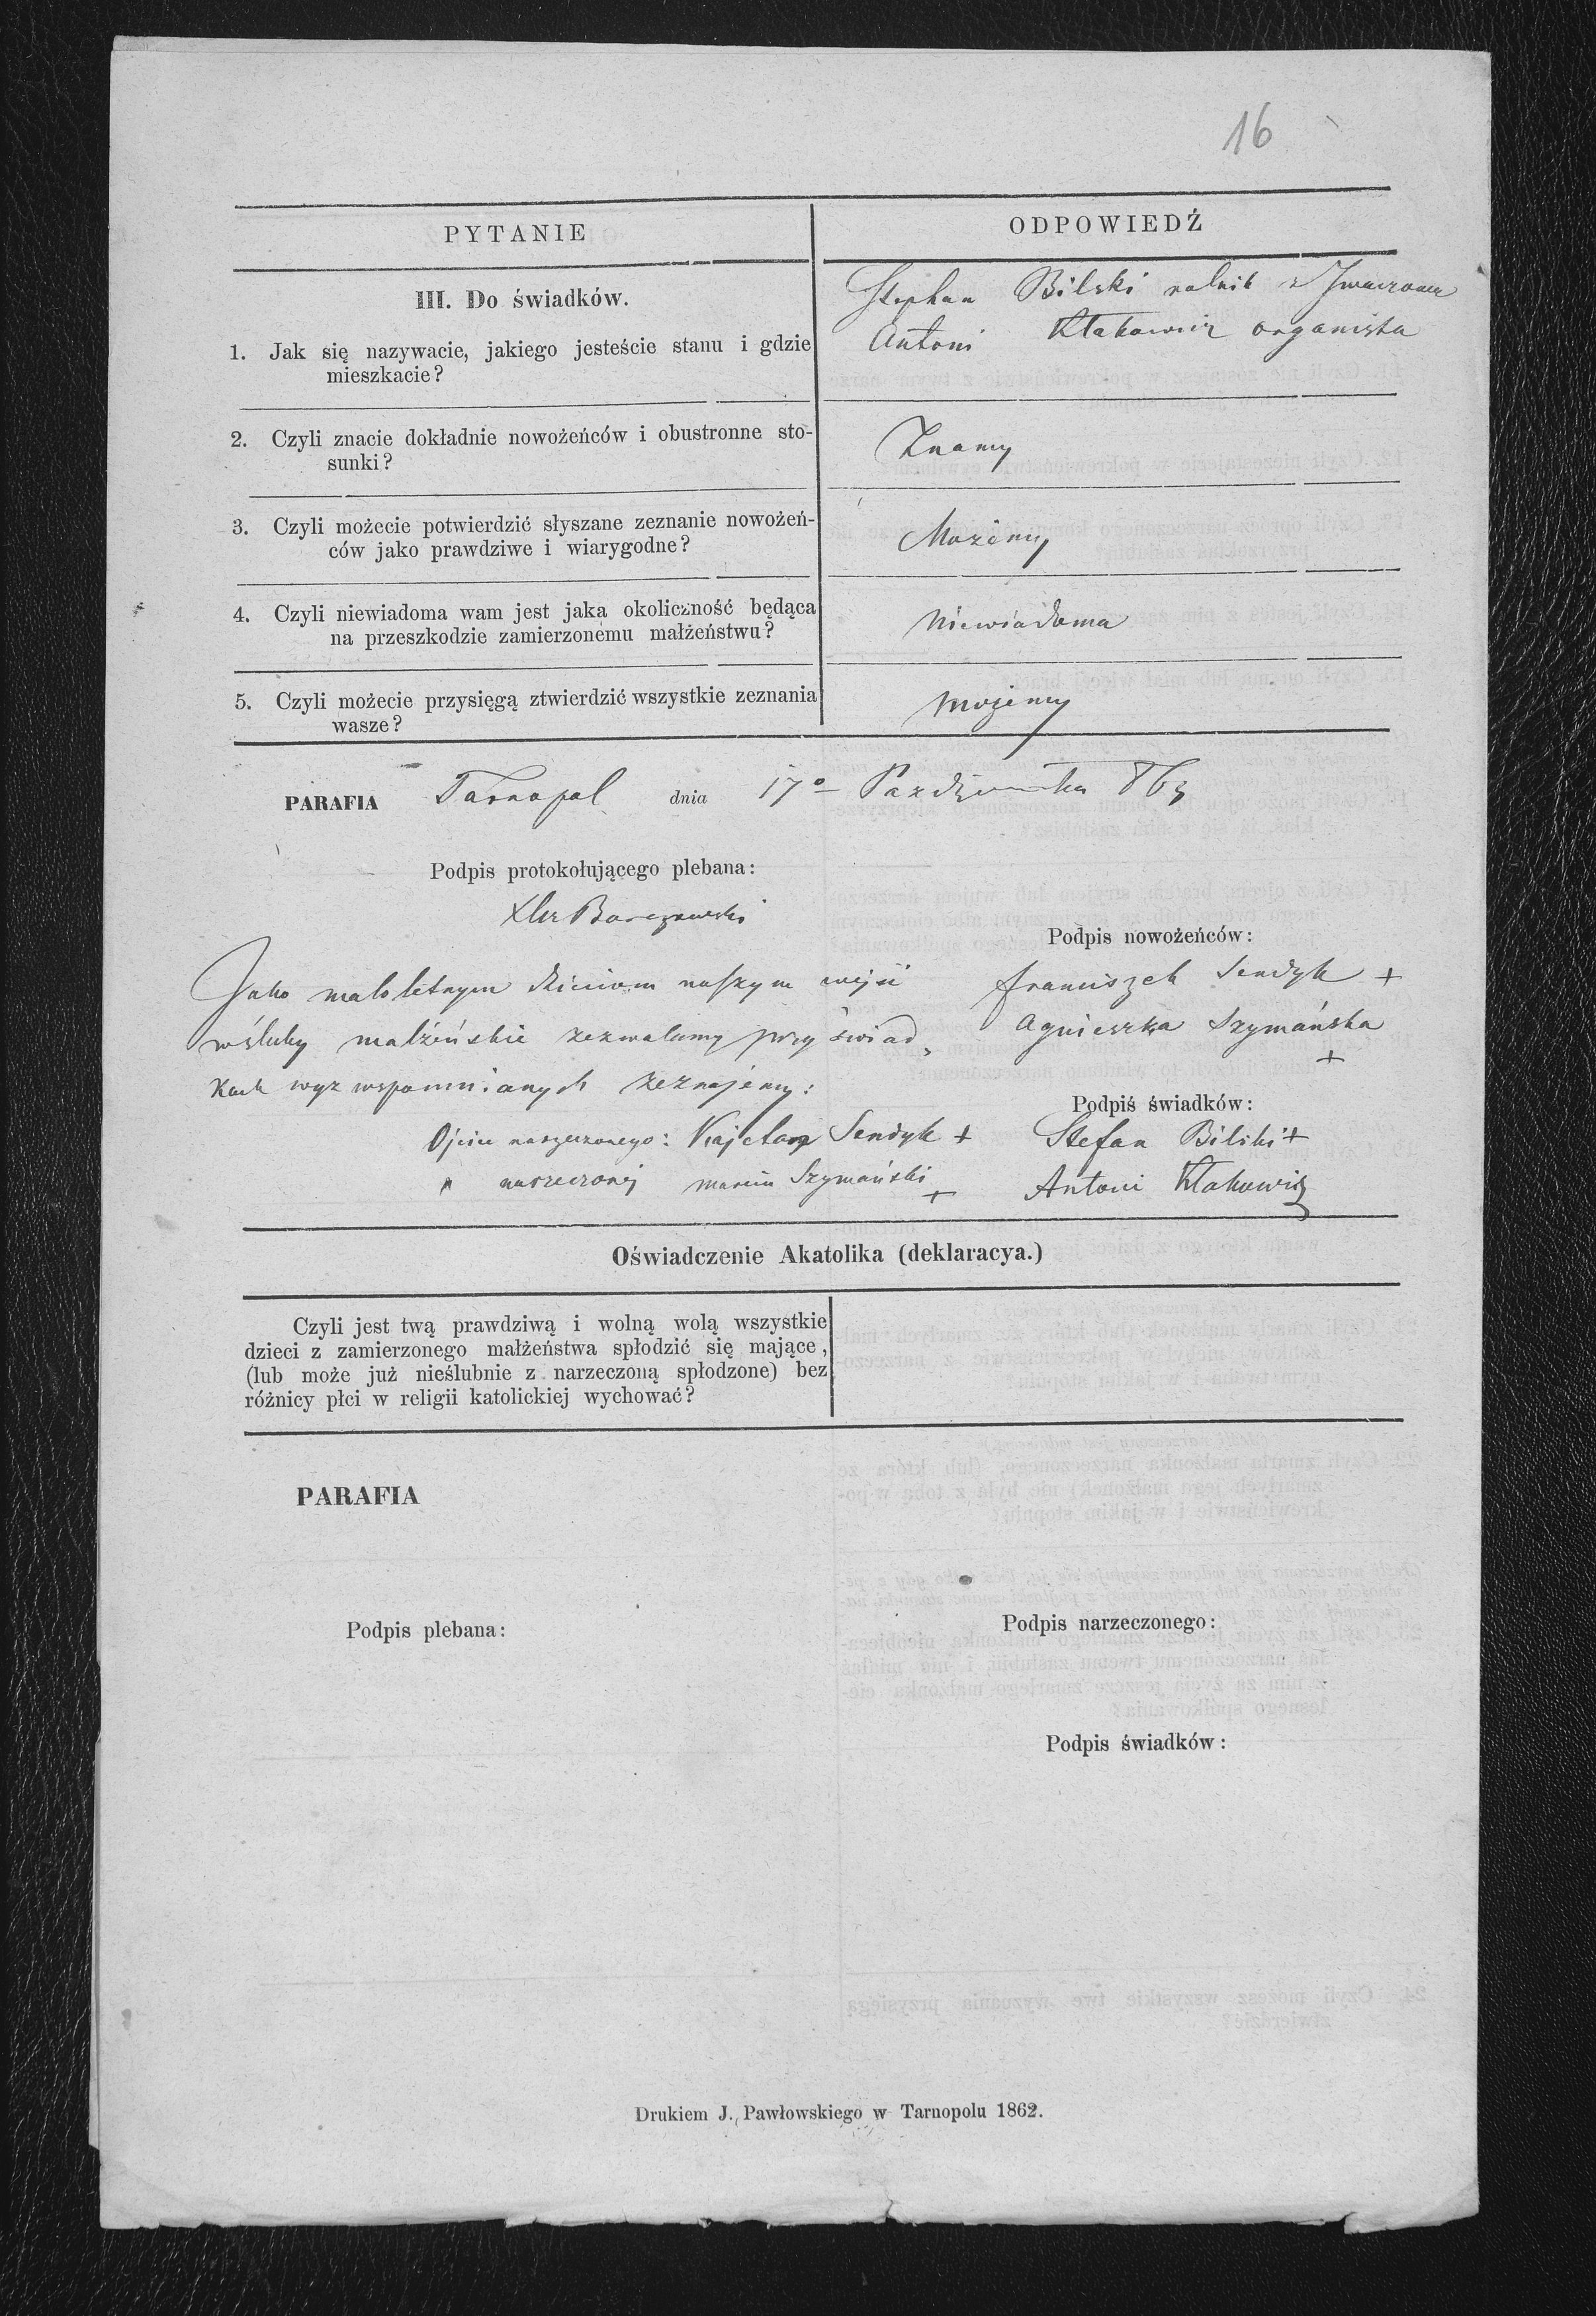 16
PYTANIE
ODPOWIEDŹ
III. Do świadków.
1. Jak się nazywacie, jakiego jesteście stanu i gdzie
mieszkacie?
Stephan Bilski rolnik z
Antoni Kłakowicz organista
2. Czyli znacie dokładnie nowożeńców i obustronne sto-
sunki?
Znamy
3. Czyli możecie potwierdzić słyszane zeznanie nowożeń-
ców jako prawdziwe i wiarygodne?
Możemy
4. Czyli niewiadoma wam jest jaka okoliczność będąca
na przeszkodzie zamierzonemu małżeństwu?
Niewiadoma
5. Czyli możecie przysięgą ztwierdzić wszystkie zeznania
wasze?
możemy
PARAFIA Tarnopol dnia 17º Października 863
Podpis protokołującego plebana:
Podpis nowożeńców:
Franciszek Sendyk +
Agnieszka Szymańska
+
Jako małoletnym dzieciom naszym wejść
wśluby małżeńskie zezwalamy przy świad
kach wyż wspomnianych zeznajemy:
Ojciec narzeczonego: Kajetan Sendyk +
" narzeczonej Marcin Szymański
+
Podpiś świadków:
Stefan Bilski +
Antoni Kłakowicz
Oświadczenie Akatolika (deklaracya.)
Czyli jest twą prawdziwą i wolną wolą wszystkie
dzieci z zamierzonego małżeństwa spłodzić się mające,
(lub może już nieślubnie z narzeczoną spłodzone) bez
różnicy płci w religii katolickiej wychować?
PARAFIA
Podpis plebana:
Podpis narzeczonego:
Podpis świadków:
Drukiem J. Pawłowskiego w Tarnopolu 1862.